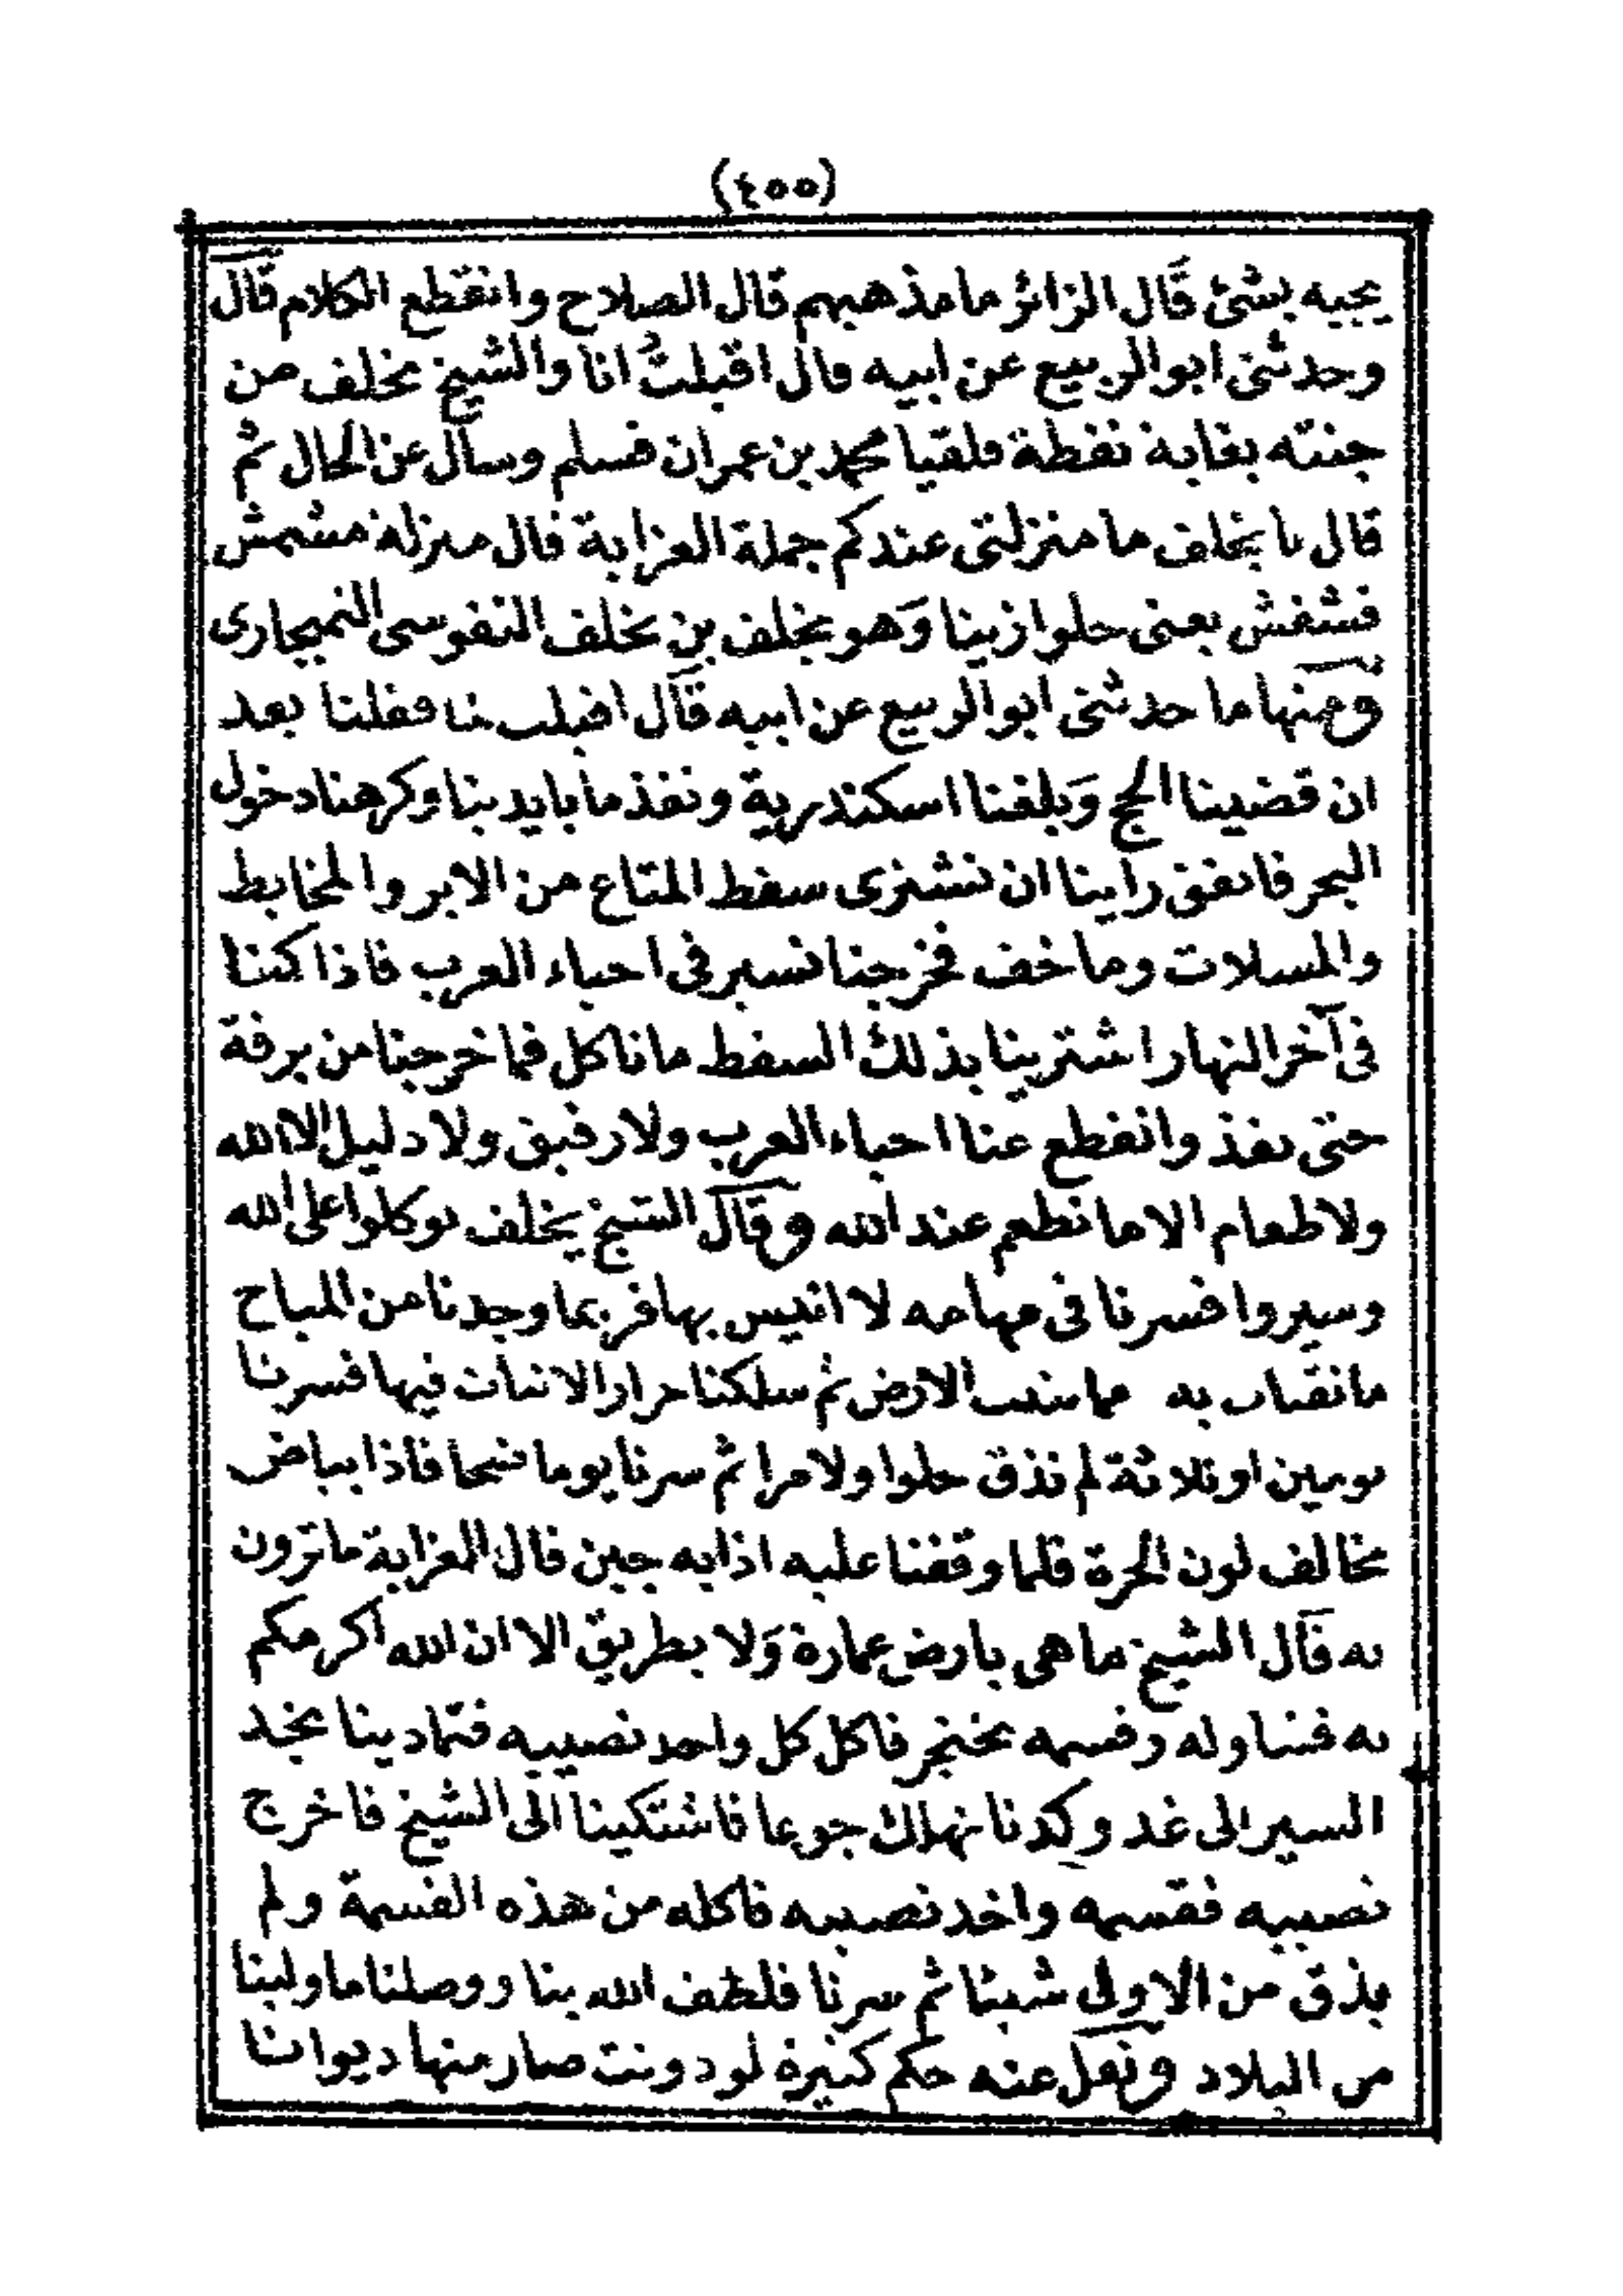 (٤٥٥)
يجيبه بشئ قال الزائر ما مذهبهم قال الصلاح وانقطع الكلام قال
وحدثنى ابو الربيع عن ابيه قال اقبلت انا والشيخ يخلف من
جنته بغابة نفطة فلقيا محمد بن عمران فسلم وسأل عن الحال ثم
قال يا يخلف ما منزلتى عندكم جملة العزابة قال منزلة مشمش
فشفش يعنى حلوا زينا وهو يخلف بن يخلف النفوسى التميجارى
ومنها ما حدثنى ابو الربيع عن ابيه قال اقبلت قفلنا بعد
ان قضينا الحج وبلغنا اسكندرية ونفذ ما بايدينا وكرهنا دخول
البحر فاتفق راينا ان نشترى سفط المتاع من الابر والمخايط
والمسلات وما خف فخرجنا نسير فى احياء العرب فاذا كنا
فى آخر النهار اشترينا بذلك السفط ما ناكل فما خرجنا من برقة
حتى نفذ وانقطع عنا احياء العرب ولا رفيق ولا دليل الا الله
ولا طعام الا ما نطعم عند الله وقال الشيخ يخلف توكلوا على الله
وسيروا فسرنا فى مهامه لا انيس بها فربما وجدنا من المباح
ما نقتات به مما تنبت الارض ثم سلكنا حرارا لا نبات فيها فسرنا
يومين او ثلاثة لم نذق حلوا ولا مرا ثم سرنا يوما فاذا ببياض
يخالف لون الحرة فلما وقفنا عليه اذا به جبن قال العزابة ما ترون
به قال الشيخ ما هى بارض عمارة ولا بطريق الا ان الله اكرمكم
به فتناوله وقسمه بخنجر فاكل كل واحد نصيبه فتمادينا بجد
السير الى غد وكدنا نهلك جوعا فاشتكينا الى الشيخ فاخرج
نصيبه فقسمه واخذ نصيبه فاكله من هذه القسمة ولم
يذق من الاولى شيئا ثم سرنا فلطف الله بنا ووصلنا ما ولينا
من البلاد ونقل عنه حكم كثيرة لو دونت صار منها ديوانا